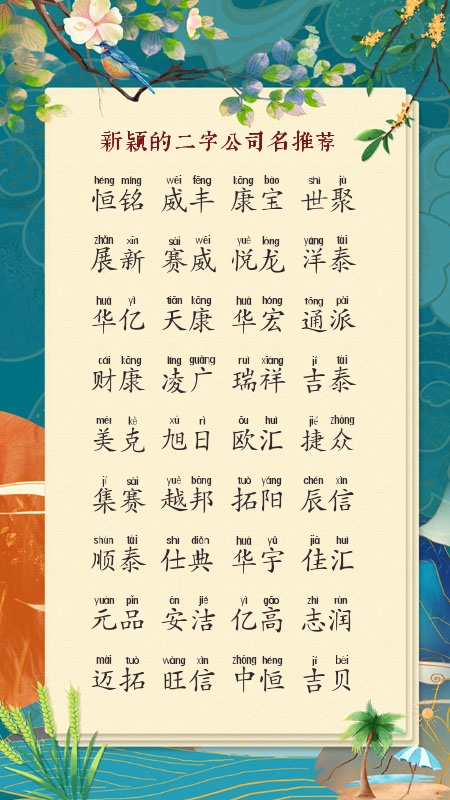 新颖的二字公司名推荐
héng míng wēi fēng kāng bǎo shì jù
恒铭 威丰 康宝 世聚
zhǎn xīn sài wēi yuè lóng yáng tài
展新 赛威 悦龙 洋泰
huá yì tiān kāng huá hóng tōng pài
华亿 天康 华宏 通派
cái kāng líng guǎng ruì xiáng jí tài
财康 凌广 瑞祥 吉泰
měi kè xù rì ōu huì jié zhòng
美克 旭日 欧汇 捷众
jí sài yuè bāng tuò yáng chén xìn
集赛 越邦 拓阳 辰信
shùn tài shì diǎn huá yǔ jiā huì
顺泰 仕典 华宇 佳汇
yuán pǐn ān jié yì gāo zhì rùn
元品 安洁 亿高 志润
mài tuò wàng xìn zhōng héng jí bèi
迈拓 旺信 中恒 吉贝